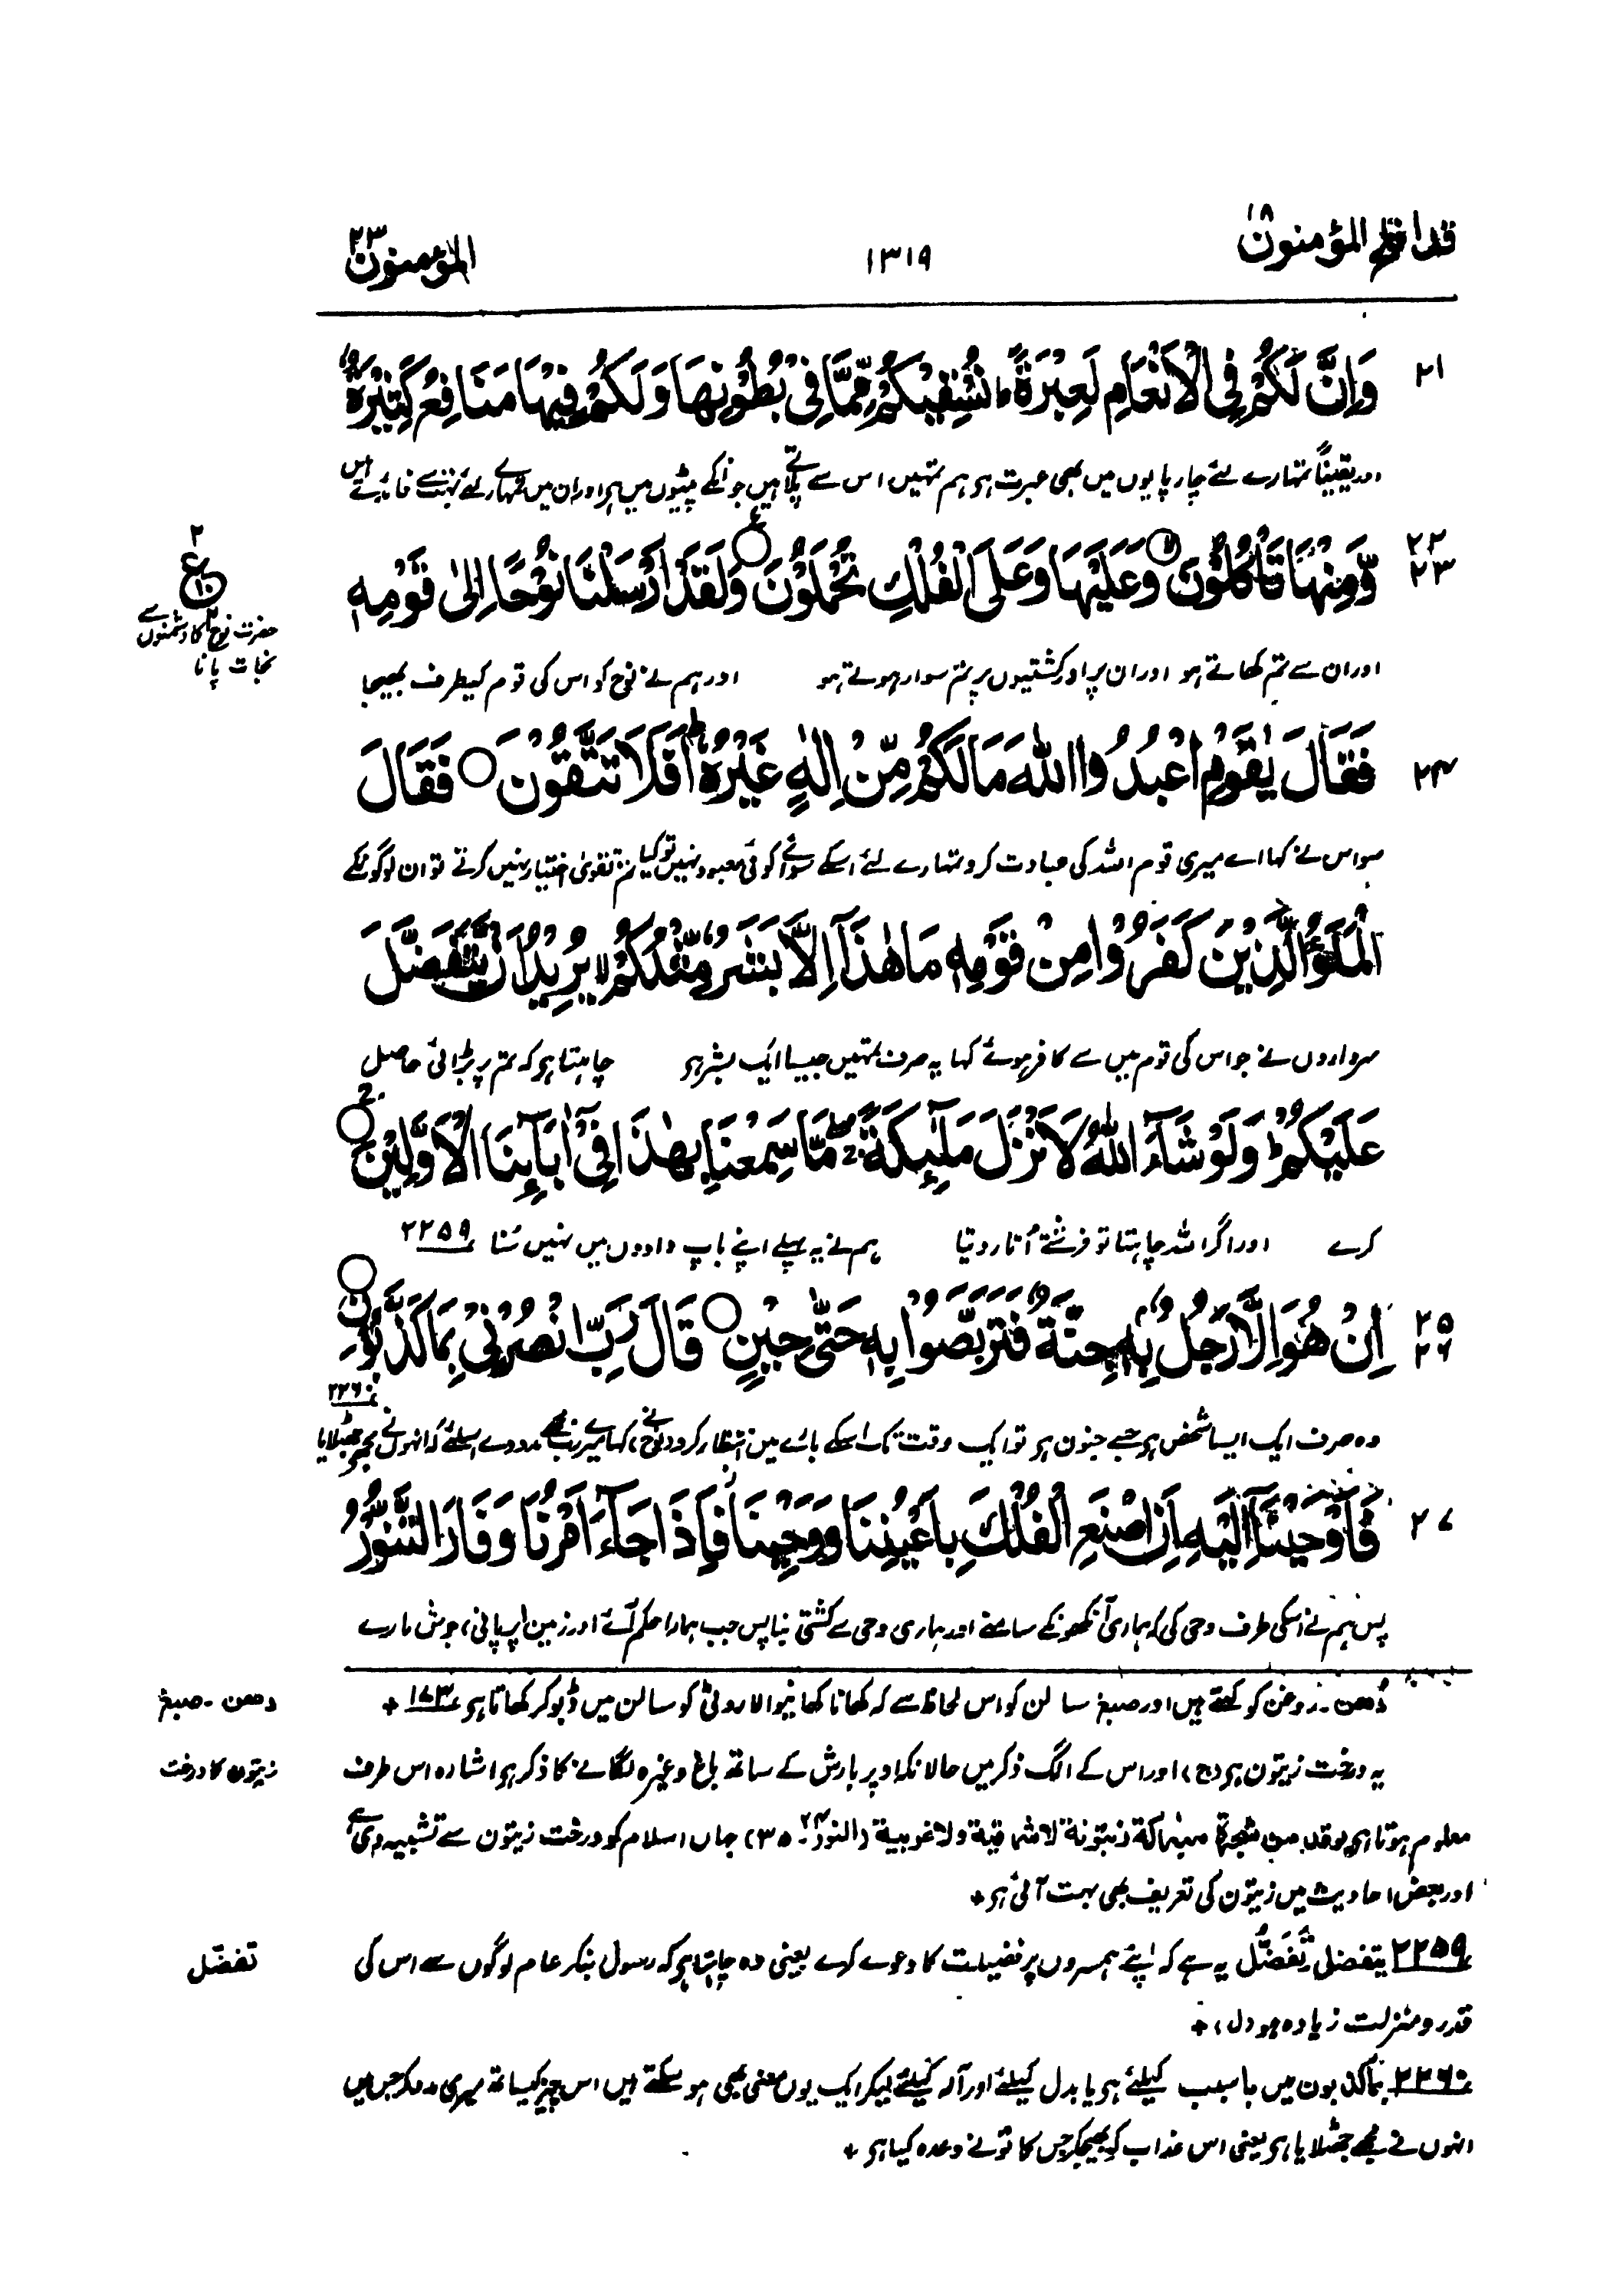 قد افلح المؤمنون ۱۸
۱۳۱۹
المؤمنون ۲۳
۲۱
وَاِنَّ لَكُمْ فِى الْاَنْعَامِ لَعِبْرَةً ؕ نُسْقِيْكُمْ مِّمَّا فِىْ بُطُوْنِهَا وَلَكُمْ فِيْهَا مَنَافِعُ كَثِيْرَةٌ
اور یقیناً تمہارے لئے چارپایوں میں بھی عبرت ہو ہم تمہیں اس سے پلاتے ہیں جو انکے پیٹوں میں ہو اور ان میں تمہارے لئے بہت سے فائدے ہیں
۲۲
۲۳
وَّمِنْهَا تَاْكُلُوْنَ ۝ وَعَلَيْهَا وَعَلَى الْفُلْكِ تُحْمَلُوْنَ ۝ وَلَقَدْ اَرْسَلْنَا نُوْحًا اِلٰى قَوْمِهٖ
۲
ع
حضرت نوحؑ کا دشمنوں سے
نجات پانا
اور ان سے تم کھاتے ہو اور ان پر اور کشتیوں پر تم سوار ہوتے ہو اور ہم نے نوح کو اس کی قوم کیطرف بھیجا
۲۴
فَقَالَ يٰقَوْمِ اعْبُدُوا اللّٰهَ مَا لَكُمْ مِّنْ اِلٰهٍ غَيْرُهٗ ؕ اَفَلَا تَتَّقُوْنَ ۝ فَقَالَ
سو اس نے کہا اے میری قوم اللہ کی عبادت کرو تمہارے لئے اسکے سوائے کوئی معبود نہیں تو کیا تم تقویٰ اختیار نہیں کرتے تو ان لوگوں کے
الْمَلَؤُا الَّذِيْنَ كَفَرُوْا مِنْ قَوْمِهٖ مَا هٰذَآ اِلَّا بَشَرٌ مِّثْلُكُمْ لا يُرِيْدُ اَنْ يَّتَفَضَّلَ
سرداروں نے جو اس کی قوم میں سے کافر ہوئے کہا یہ صرف تمہیں جیسا ایک بشر ہو چاہتا ہو کہ تم پر بڑائی حاصل
عَلَيْكُمْ ؕ وَلَوْ شَآءَ اللّٰهُ لَاَنْزَلَ مَلٰٓئِكَةً ۚ مَّا سَمِعْنَا بِهٰذَا فِىْٓ اٰبَآئِنَا الْاَوَّلِيْنَ ۝
کرے اور اگر اللہ چاہتا تو فرشتے اُتار دیتا ہم نے یہ پہلے اپنے باپ دادوں میں نہیں سُنا ۲۲۵۹
۲۵
۲۶
اِنْ هُوَ اِلَّا رَجُلٌۢ بِهٖ جِنَّةٌ فَتَرَبَّصُوْا بِهٖ حَتّٰى حِيْنٍ ۝ قَالَ رَبِّ انْصُرْنِىْ بِمَا كَذَّبُوْنِ ۝
۲۲۶۰
وہ صرف ایک ایسا شخص ہو جسے جنون ہو تو ایک وقت تک اسکے بارے میں انتظار کرو (نوح) نے کہا میرے رب مجھے مدد دے اسلئے کہ انہوں نے مجھے جھٹلایا
۲۷
فَاَوْحَيْنَآ اِلَيْهِ اَنِ اصْنَعِ الْفُلْكَ بِاَعْيُنِنَا وَوَحْيِنَا فَاِذَا جَآءَ اَمْرُنَا وَفَارَ التَّنُّوْرُ
پس ہم نے اسکی طرف وحی کی کہ ہماری آنکھوں کے سامنے اور ہماری وحی سے کشتی بنا پس جب ہمارا حکم آئے اور زمین (پر پانی) جوش مارے
دھن ۔ صبغ
دُھن ۔ روغن کو کہتے ہیں اور صبغ سالن کو اس لحاظ سے کہ کھانا کھانیوالا روٹی کو سالن میں ڈبو کر کھاتا ہو ۱۷۳ +
زیتون کا درخت
یہ درخت زیتون ہو (ج) اور اس کے الگ ذکر میں حالانکہ اوپر بارش کے ساتھ باغ وغیرہ لگانے کا ذکر ہو اشارہ اس طرف
معلوم ہوتا ہو یوقد من شجرة مبٰركة زيتونة لا شرقية ولا غربية (النور ۲۴ ۔ ۳۵) جہاں اسلام کو درخت زیتون سے تشبیہ دی ہے
اور بعض احادیث میں زیتون کی تعریف بھی بہت آئی ہو +
تفضّل
۲۲۵۹ یتفضل تَفَضُّل یہ ہے کہ اپنے ہمسروں پر فضیلت کا دعوے کرے یعنی وہ چاہتا ہو کہ رسول بنکر عام لوگوں سے اس کی
قدر و منزلت زیادہ ہو (ل) +
۲۲۶۰ بما کذبون میں با سبب کیلئے ہو یا بدل کیلئے اور آلہ کیلئے لیکر ایک یوں معنی بھی ہو سکتے ہیں اس چیز کیساتھ میری مدد کر جس میں
انہوں نے مجھے جھٹلایا ہو یعنی اس عذاب کو بھیجکر جس کا تو نے وعدہ کیا ہو +